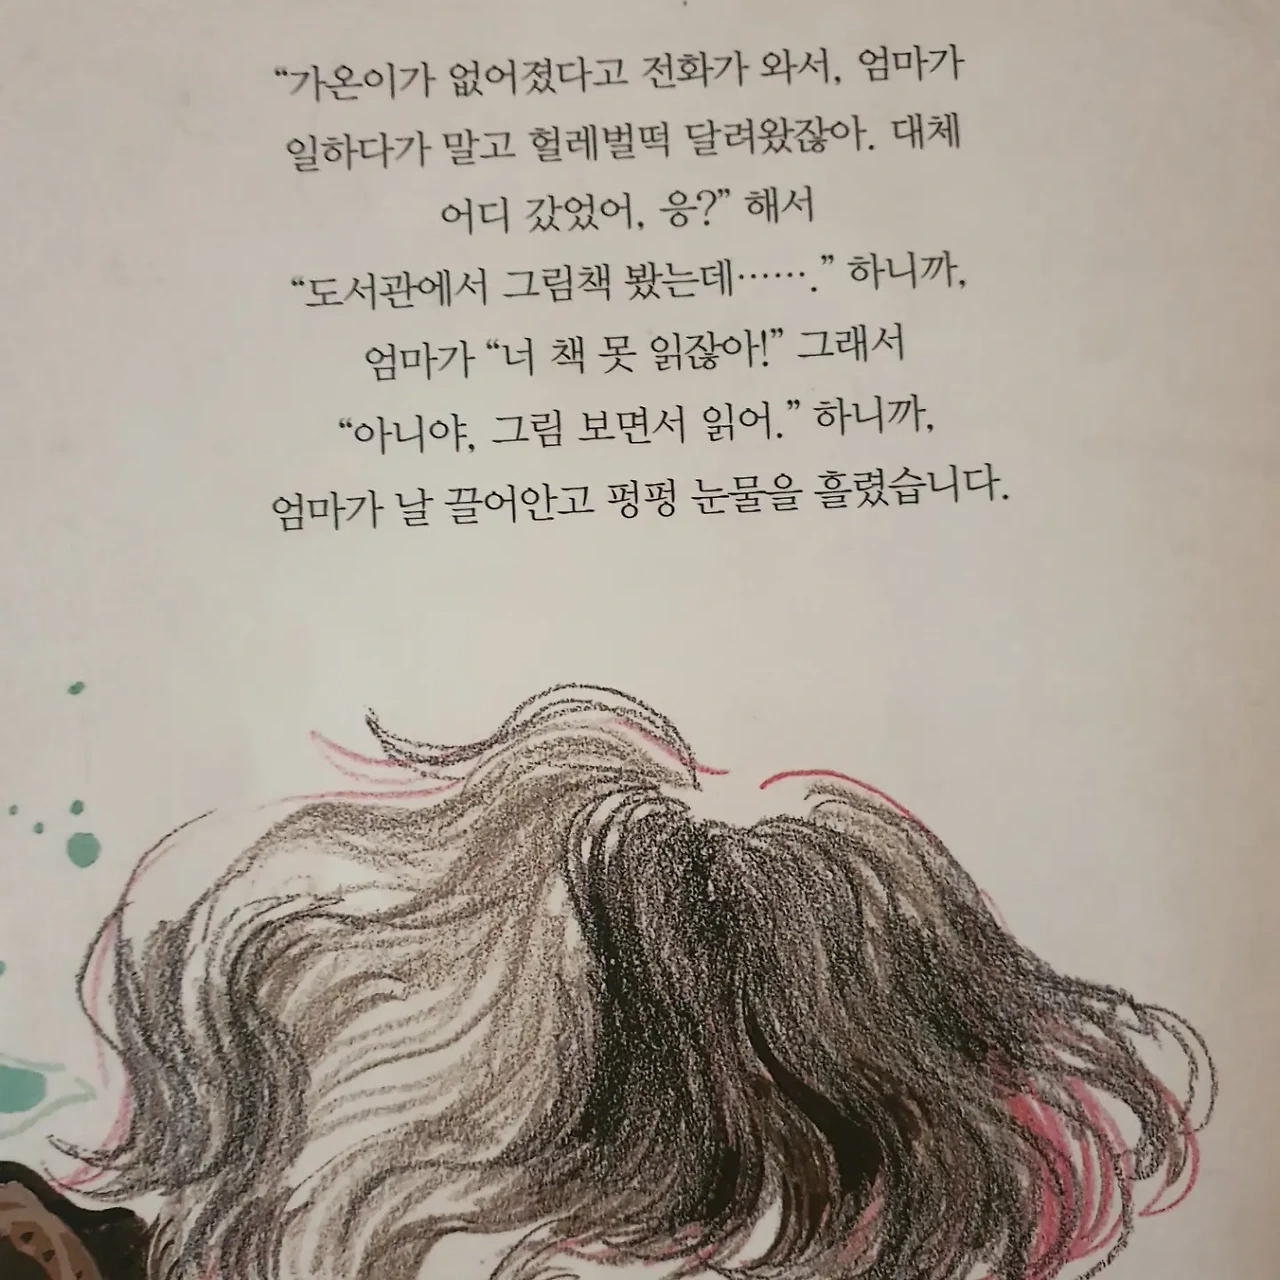 “가온이가 없어졌다고 전화가 와서, 엄마가
일하다가 말고 헐레벌떡 달려왔잖아. 대체
어디 갔었어, 응?” 해서
“도서관에서 그림책 봤는데…….” 하니까,
엄마가 “너 책 못 읽잖아!” 그래서
“아니야, 그림 보면서 읽어.” 하니까,
엄마가 날 끌어안고 펑펑 눈물을 흘렸습니다.